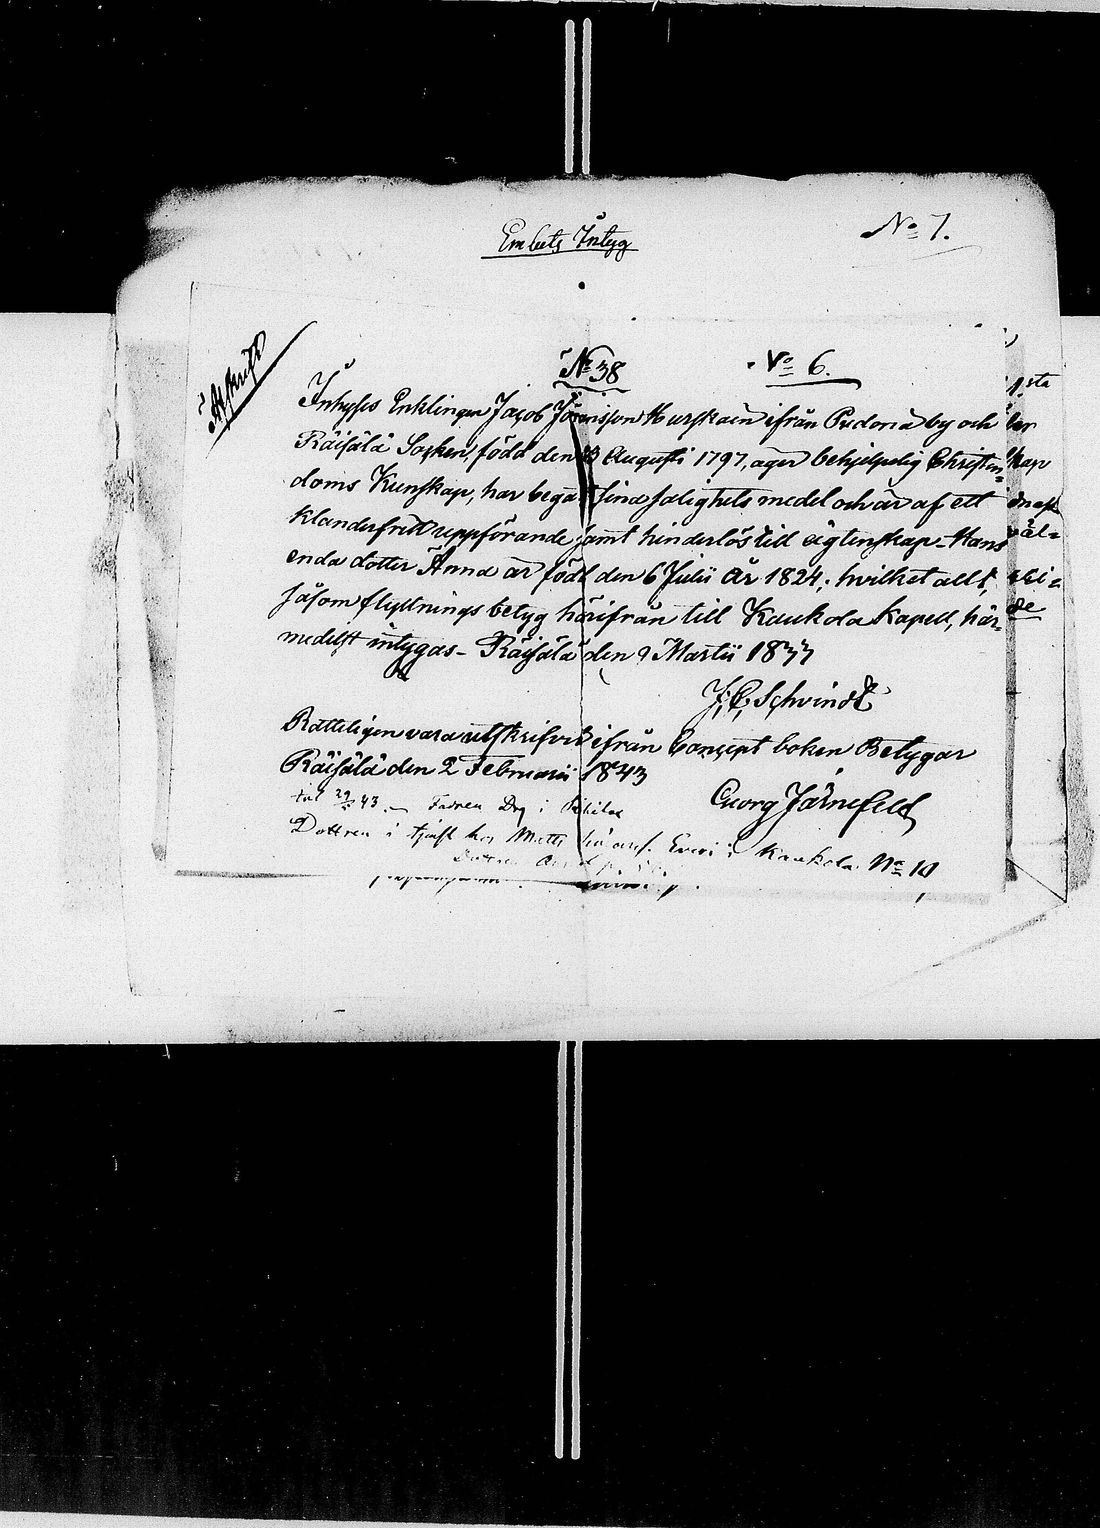 Embets Intyg
No 7.
Afskrift
No 38
No 6.
Inhyses Enklingen Jacob Jöransson Hurskain ifrån Pudoria by och
Räisälä Socken, född den 13 Augusti 1797, äger behjelpelig Christen=
doms Kunskap, har begått sina salighets medel och är af ett
klanderfritt uppförande samt hinderlös till ägtenskap - Hans
enda dotter Anna är född den 6 Julii År 1824; hvilket allt,
såsom flyttnings betyg härifrån till Kaukola Kapell, här=
medelst intygas - Räisälä den 9 Martii 1837
J. C. Schvindt
Rätteligen vara utskrifvit ifrån Concept boken Betygar
Räisälä den 2 Februarii 1843
Georg Järnefelt
29/3 43. - Fadren Drg i
Dottren i tjenst hos Matts i Kaukola No 10
1sta
kap
väl=
de